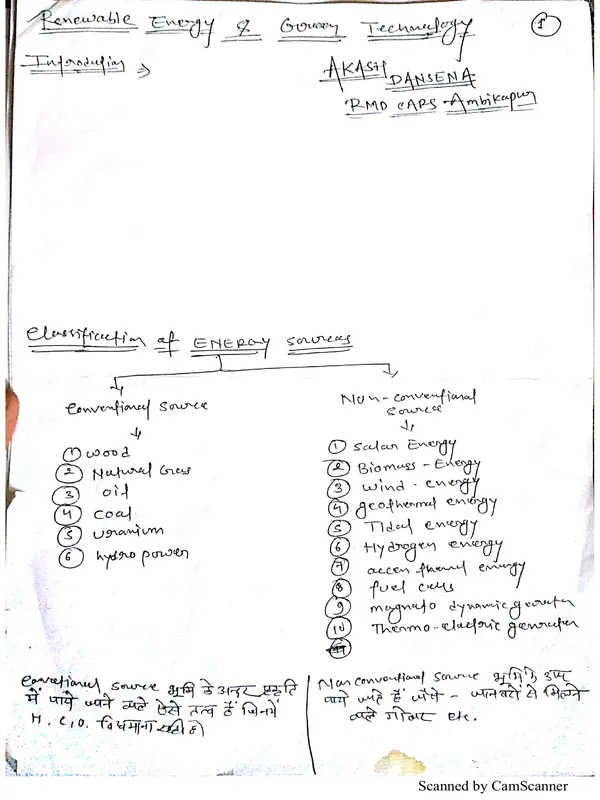 Renewable Energy & Green Technology
1
Introduction ⇒
AKASH DANSENA
RMD CARS Ambikapur
Classification of ENERGY sources
Conventional source
① wood
② Natural Gas
③ oil
④ coal
⑤ uranium
⑥ hydro power
Non-conventional source
① Solar Energy
② Biomass - Energy
③ wind - energy
④ geothermal energy
⑤ Tidal energy
⑥ Hydrogen energy
⑦ energy
⑧ fuel cells
⑨ magnato dynamic
⑩ Thermo-electric
Conventional source भूमि के अन्दर प्रकृति
में पाये जाने वाले ऐसे तत्व हैं जिनमें
H, C, O.
Non conventional source भूमि के उपर
पाये जाते हैं जैसे - जानवरों से मिलने
वाले गोबर etc.
Scanned by CamScanner